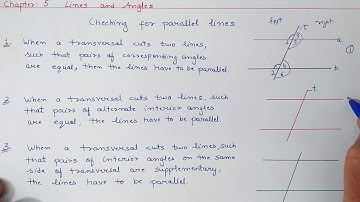 Chapter: 5 Lines and Angles
Checking for parallel lines
left right
1 When a transversal cuts two lines,
such that pairs of corresponding angles
are equal, then the lines have to be parallel.
t
a
b
1
2 When a transversal cuts two lines, such
that pairs of alternate interior angles
are equal, the lines have to be parallel.
t
3 When a transversal cuts two lines, such
that pairs of interior angles on the same
side of transversal are supplementary,
the lines have to be parallel.